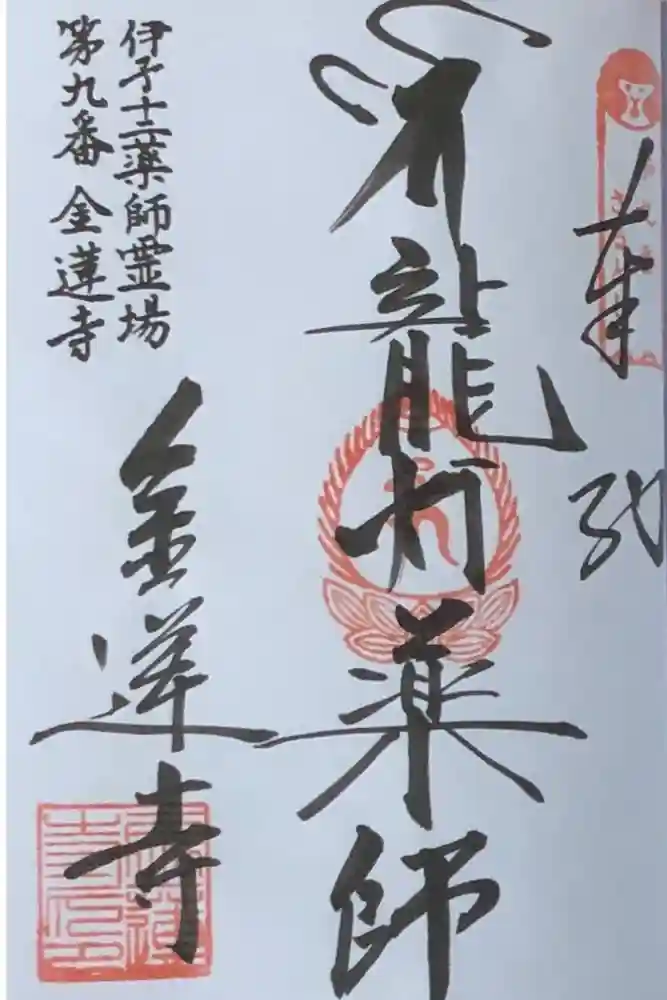 奉拝
龍灯薬師
伊予十二薬師霊場
第九番 金蓮寺
金蓮寺